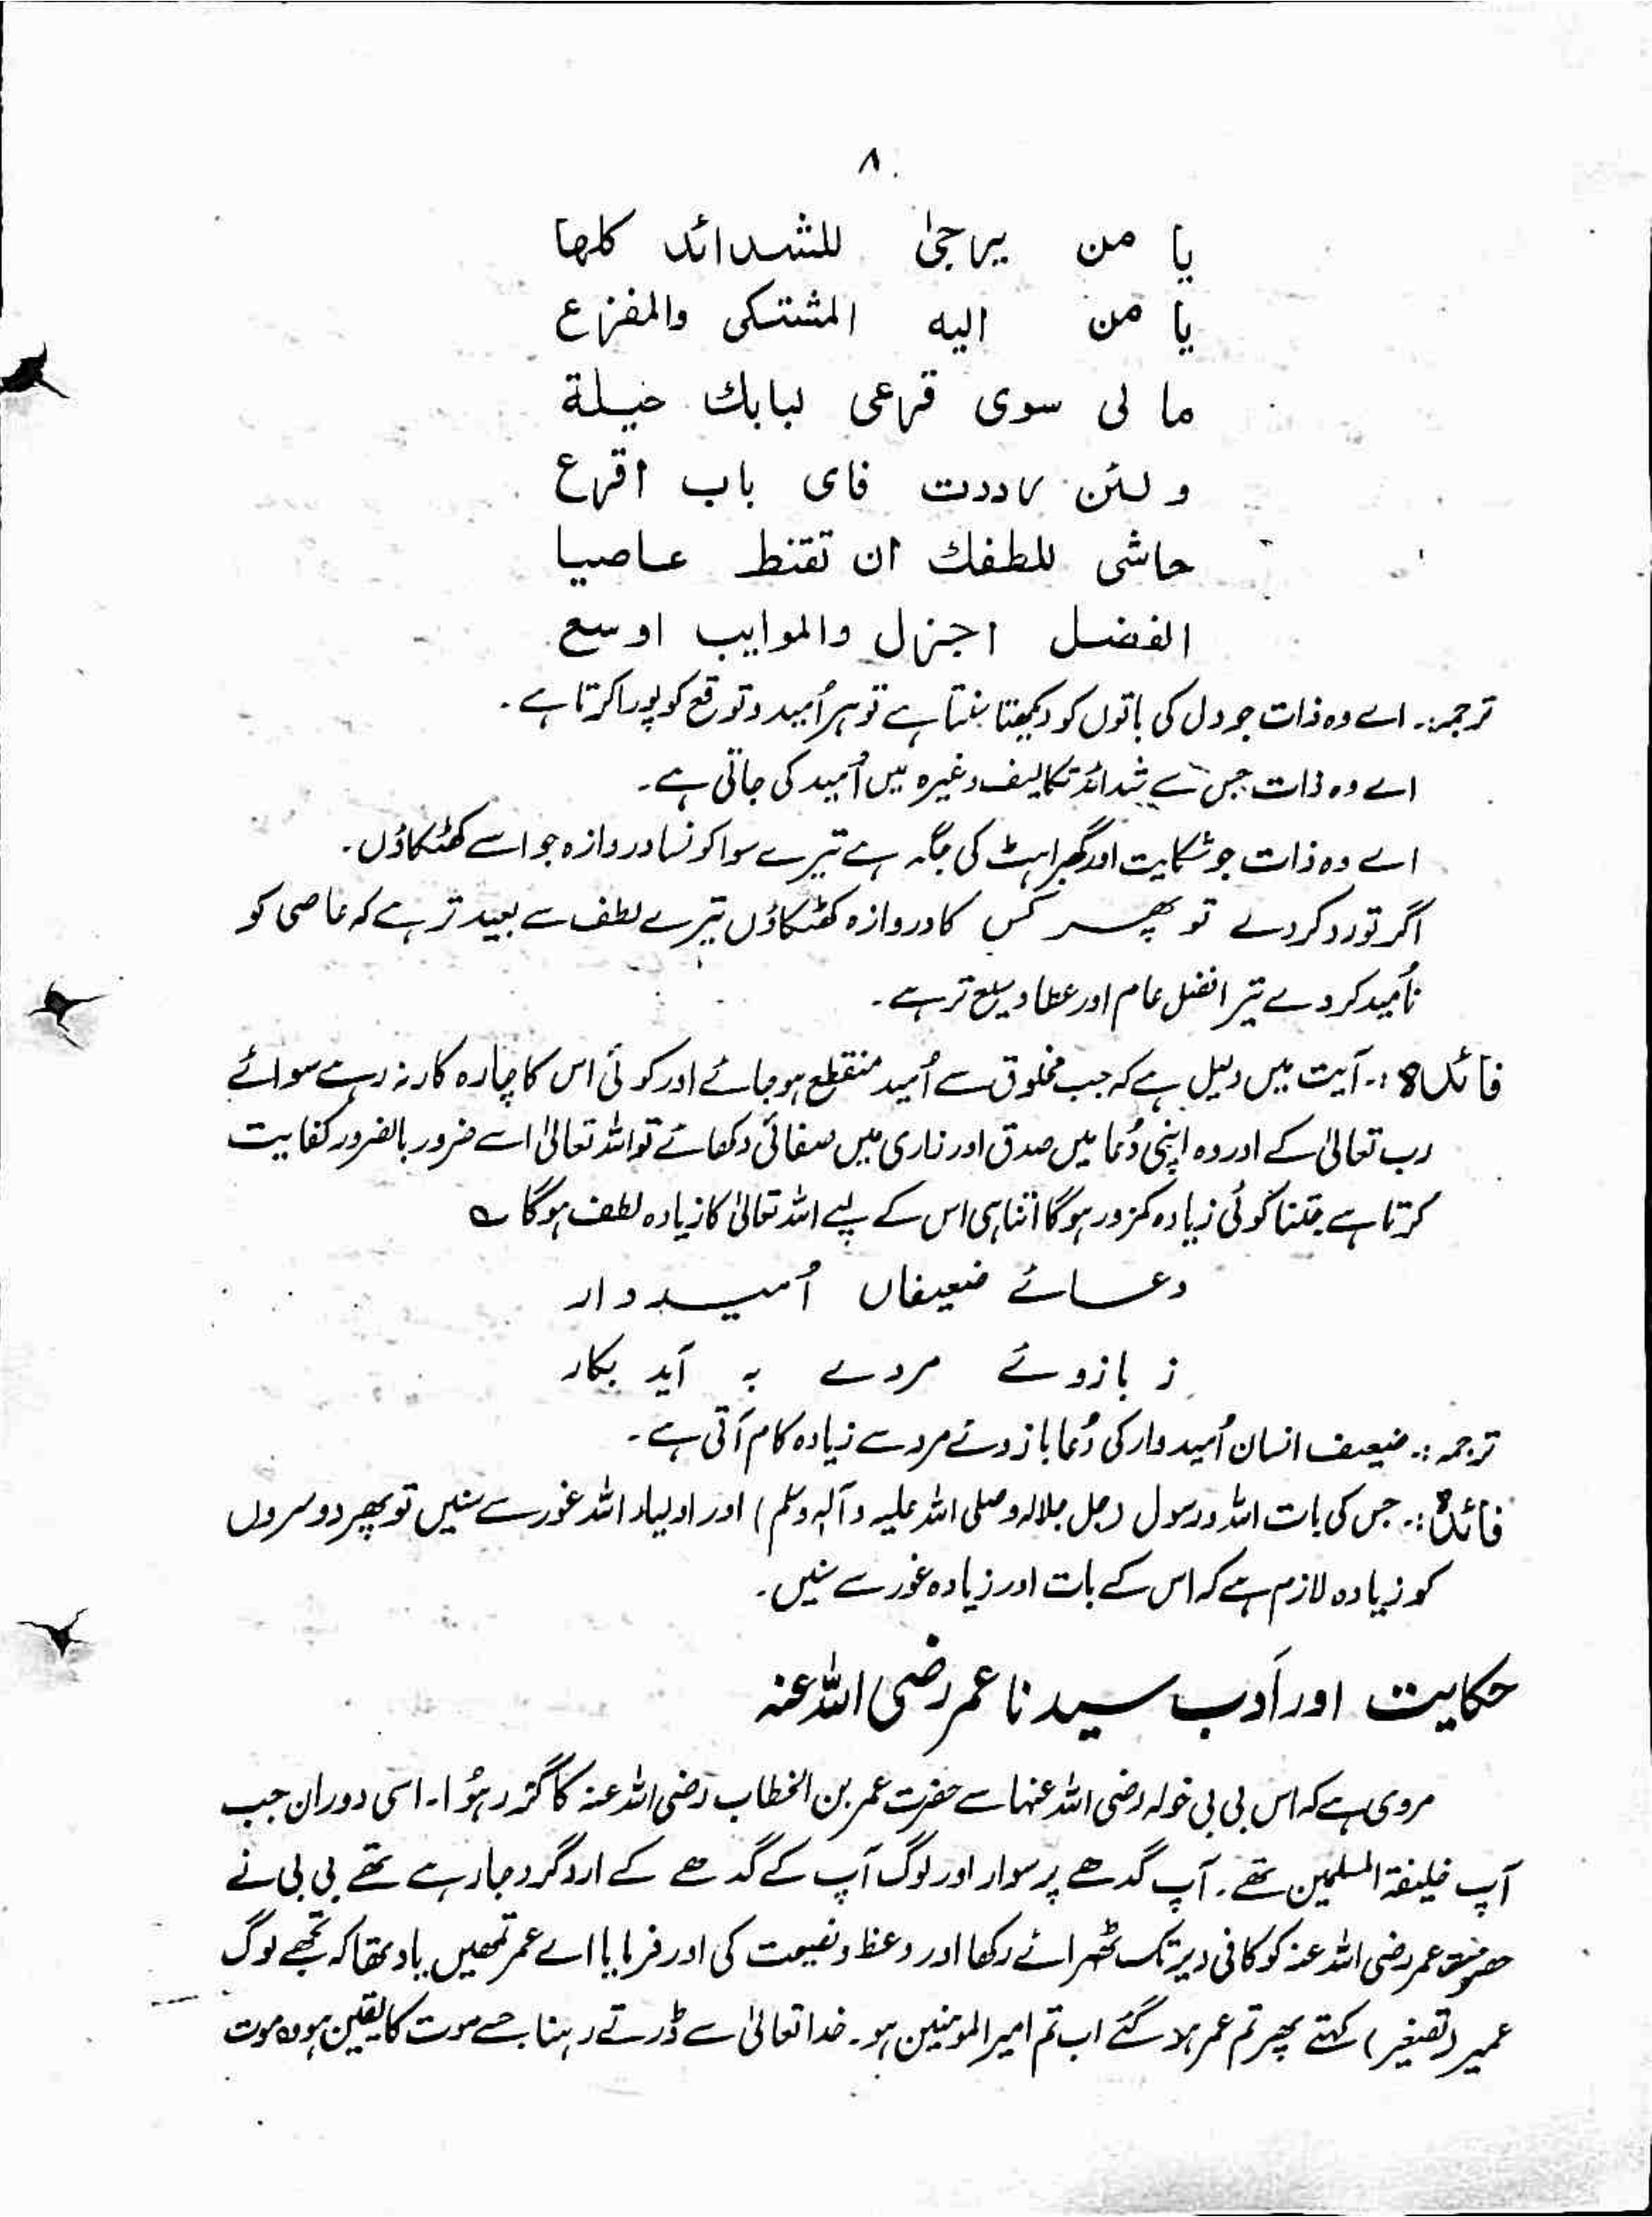 ۸
یا من یرجیٰ للشدائد کلها
یا من الیه المشتکی والمفزع
ما لی سوی قرعی لبابك حیلة
و لئن رددت فای باب اقرع
حاشی للطفك ان تقنط عاصیا
الفضل اجزل والموایب اوسع
ترجمہ:۔ اے وہ ذات جو دل کی باتوں کو دیکھتا سنتا ہے تو ہر اُمید و توقع کو پورا کرتا ہے۔
اے وہ ذات جس سے شدائد تکالیف وغیرہ میں اُمید کی جاتی ہے۔
اے وہ ذات جو شکایت اور گھبراہٹ کی جگہ ہے تیرے سوا کونسا دروازہ جو اسے کھٹکاؤں۔
اگر تو رد کر دے تو پھر کس کا دروازہ کھٹکاؤں تیرے لطف سے بعید تر ہے کہ عاصی کو
نااُمید کر دے تیرا فضل عام اور عطا وسیع تر ہے۔
فائدہ:۔ آیت میں دلیل ہے کہ جب مخلوق سے اُمید منقطع ہو جائے اور کوئی اس کا چارہ کار نہ رہے سوائے
رب تعالیٰ کے اور وہ اپنی دُعا میں صدق اور زاری میں صفائی دکھائے تو اللہ تعالیٰ اسے ضرور بالضرور کفایت
کرتا ہے جتنا کوئی زیادہ کمزور ہو گا اتنا ہی اس کے لیے اللہ تعالیٰ کا زیادہ لطف ہو گا ؎
دعائے ضعیفاں اُمیدوار
ز بازوئے مردے بہ آید بکار
ترجمہ:۔ ضیعف انسان اُمیدوار کی دُعا بازوئے مرد سے زیادہ کام آتی ہے۔
فائدہ:۔ جس کی بات اللہ و رسول (جل جلالہ وصلی اللہ علیہ وآلہ وسلم) اور اولیاء اللہ غور سے سنیں تو پھر دوسروں
کو زیادہ لازم ہے کہ اس کے بات اور زیادہ غور سے سنیں۔
حکایت اور اَدب سیدنا عمر رضی اللہ عنہ
مروی ہے کہ اس بی بی خولہ رضی اللہ عنہا سے حضرت عمر بن الخطاب رضی اللہ عنہ کا گزر ہُوا۔ اسی دوران جب
آپ خلیفۃ المسلمین تھے۔ آپ گدھے پر سوار اور لوگ آپ کے گدھے کے اردگرد جا رہے تھے بی بی نے
حضرت عمر رضی اللہ عنہ کو کافی دیر تک ٹھہرائے رکھا اور وعظ ونصیحت کی اور فرمایا اے عمر تمھیں یاد تھا کہ تجھے لوگ
عمیر (تصغیر) کہتے پھر تم عمر ہو گئے اب تم امیر المومنین ہو۔ خدا تعالیٰ سے ڈرتے رہنا جسے موت کا یقین ہو وہ موت